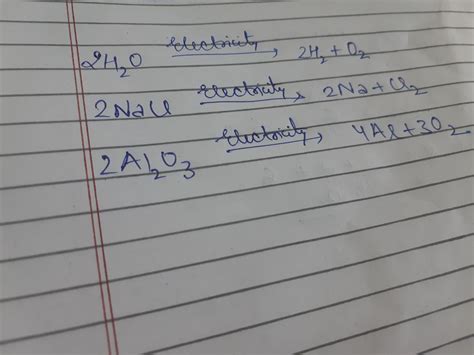 2H₂O Electricity→ 2H₂ + O₂
2NaCl Electricity→ 2Na + Cl₂
2Al₂O₃ Electricity→ 4Al + 3O₂